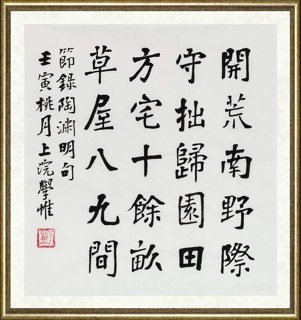 開荒南野際
守拙歸園田
方宅十餘畝
草屋八九間
節錄陶淵明句
壬寅桃月上浣學惟